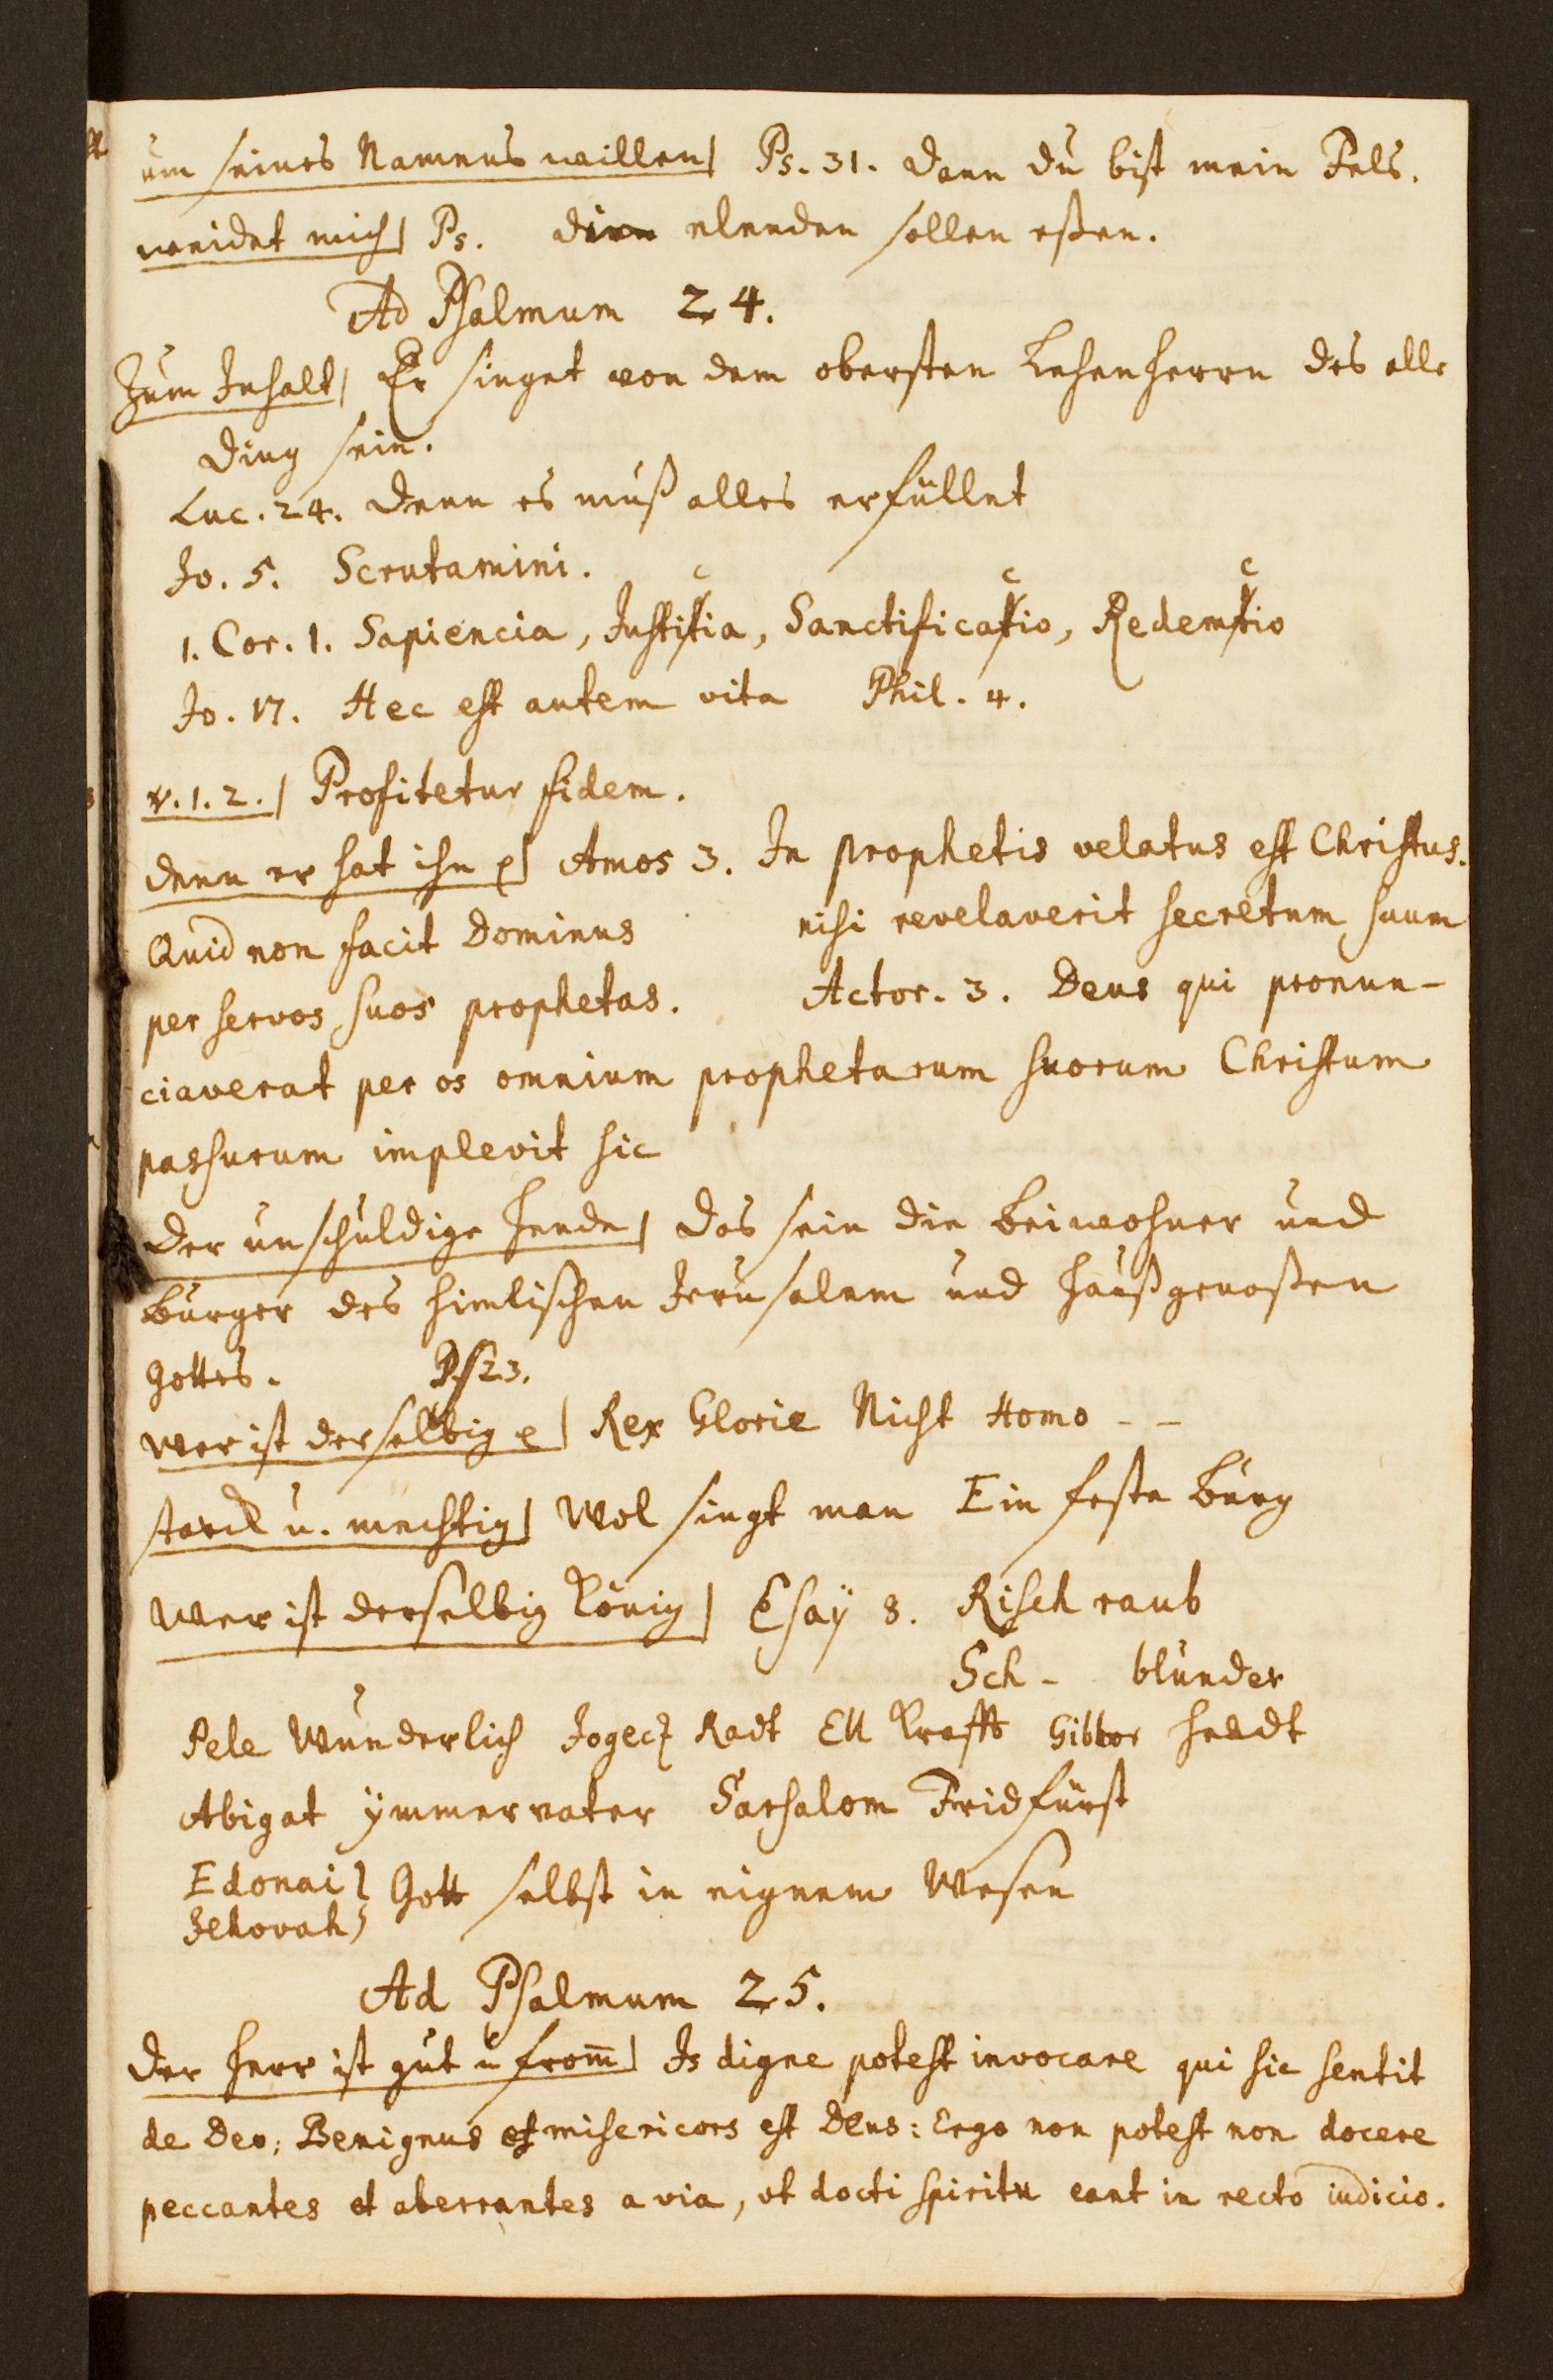 um seines Namens willen| Ps. 31. dann du bist mein Fels.
weidet mich| Ps. die elenden sollen eßen.
Ad Psalmum 24.
Zum Inhalt| Er singet von dem obersten Lehenherrn des alle
ding sein.
Luc. 24. denn es muß alles erfüllet
Jo. 5. Scrutamini.
1. Cor. 1. Sapiencia, Justicia, Sanctificacio, Redemcio
Jo. 17. Hec est autem vita Phil. 4.
v. 1. 2.| Profitetur fidem.
denn er hat ihn ꝛ| Amos 3. In prophetis velatus est Christus.
Quid non facit Dominus nisi revelaverit secretum suum
per servos suos prophetas. Actor. 3. Deus qui pronun-
ciaverat per os omnium prophetarum suorum Christum
passurum implevit sic
Der unschuldige hende| das sein die beiwohner und
bürger des himlischen Jerusalem und haußgenoßen
Gottes. Ps 23.
Wer ist derselbig ꝛ| Rex Glorie Nicht Homo - -
starck u. mechtig| Wol singt man Ein feste burg
Wer ist derselbig König| Esaÿ 8. Risch raub
Sch - blunder
Pele Wunderlich Jogecz Radt Ell Krafft Gibbor heldt
Abigat ÿmmervater Sarsalom Fridfürst
Edonai} Gott selbst in eignem Wesen
Jehovah}
Ad Psalmum 25.
Der herr ist gut u from̄| Is digne potest invocare qui sic sentit
de Deo; Benignus et misericors est Deus: Ergo non potest non docere
peccantes et aberrantes a via, ut docti spiritu eant in recto iudicio.